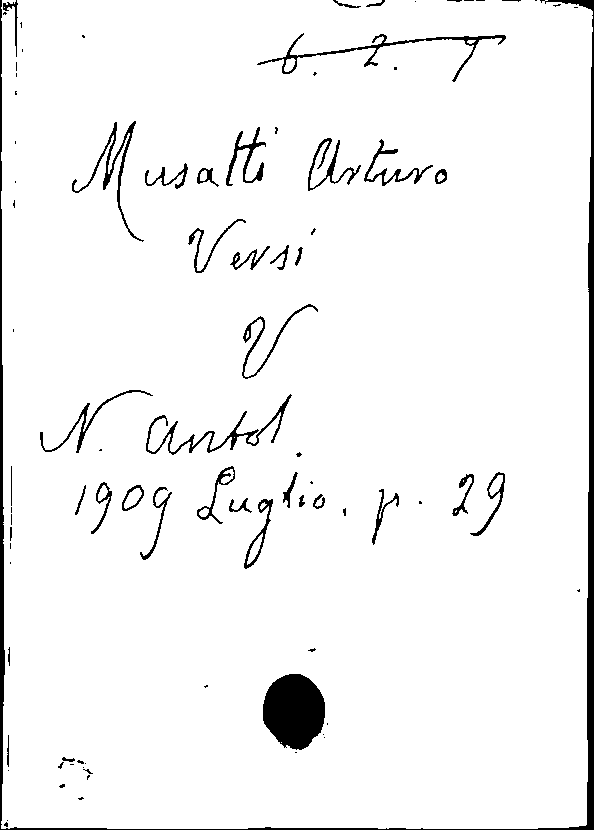 6. 2. 7
Musatti Arturo
Versi
V
N. Antol.
1909 Luglio. p. 29